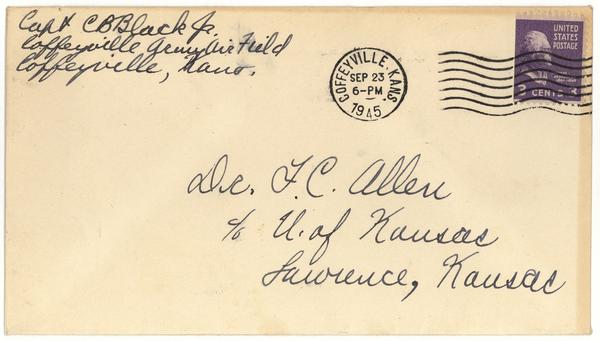 Capt CB Black Jr.
Coffeyville Army Air Field
Coffeyville, Kans.
COFFEYVILLE, KANS.
SEP 23
6-PM
1945
UNITED
STATES
POSTAGE
3 CENTS 3
Dr. F. C. Allen
c/o U. of Kansas
Lawrence, Kansas